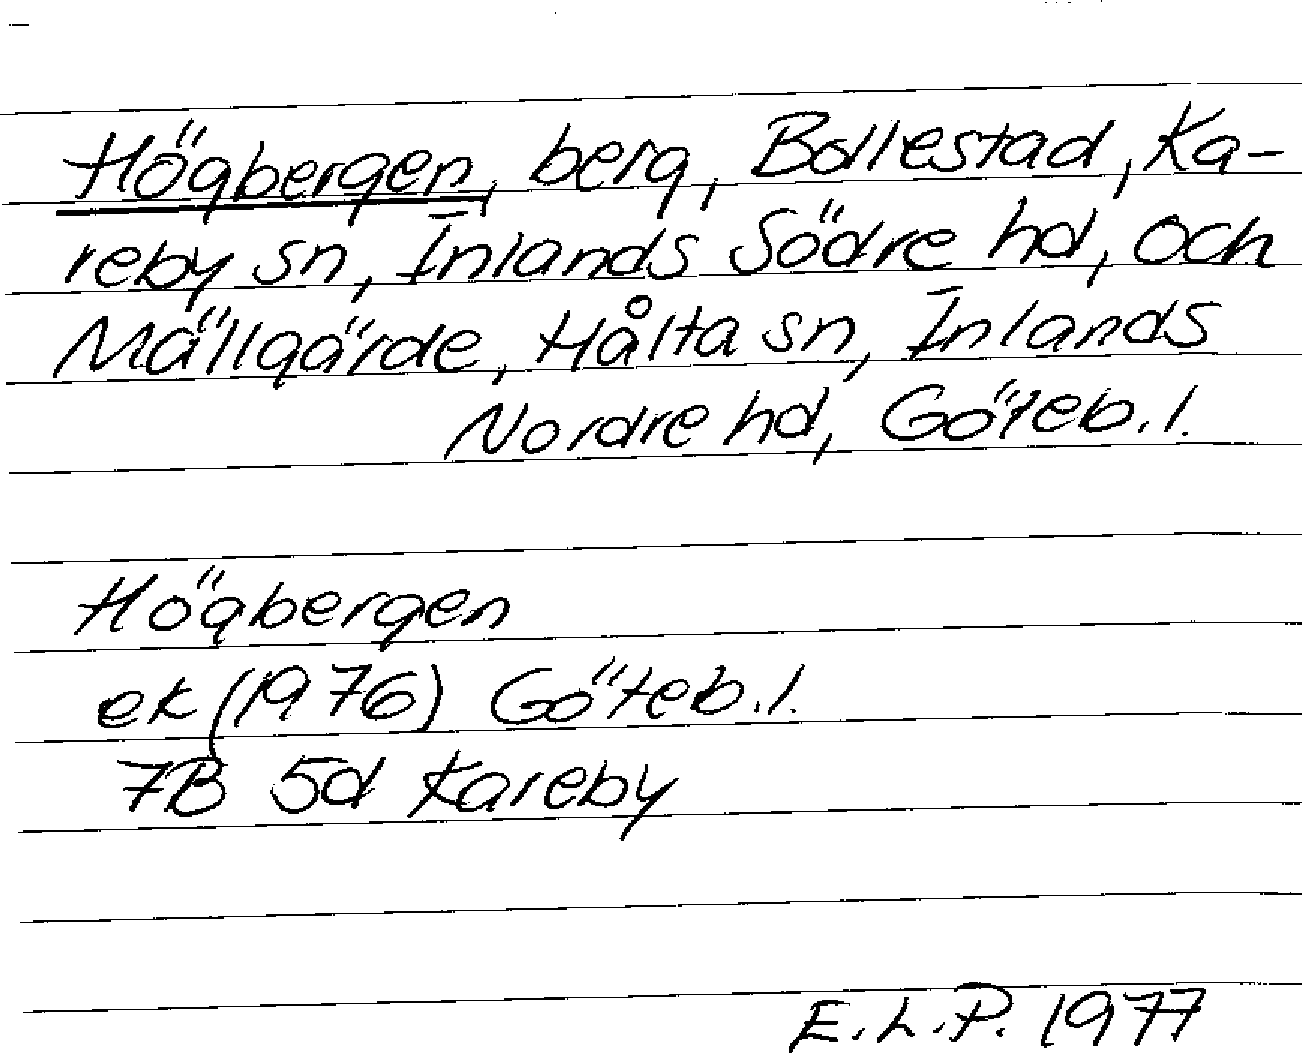 Högbergen, berg, Bollestad, Ka-
reby sn, Inlands Södre hd, och
Mällgärde, Hålta sn, Inlands
Nordre hd, Göteb. l.
Högbergen
ek (1976) Göteb. l.
7B 5d Kareby
E.L.P. 1977